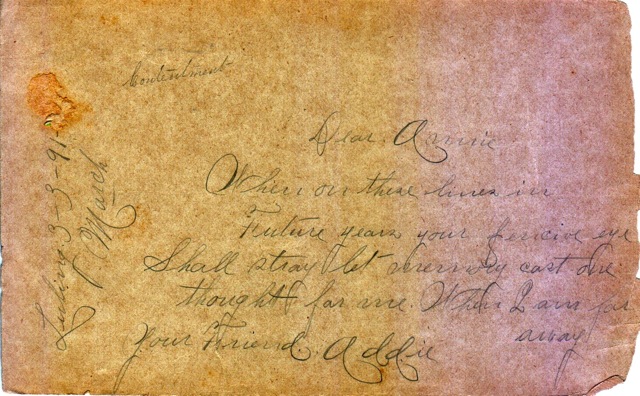 Contentment
Dear Annie
When on these lines in
Future years your pencive eye
Shall stray let memory cast one
thought for me. When I am far
away
Your Friend. Addie
Luling 3-3-91.
March